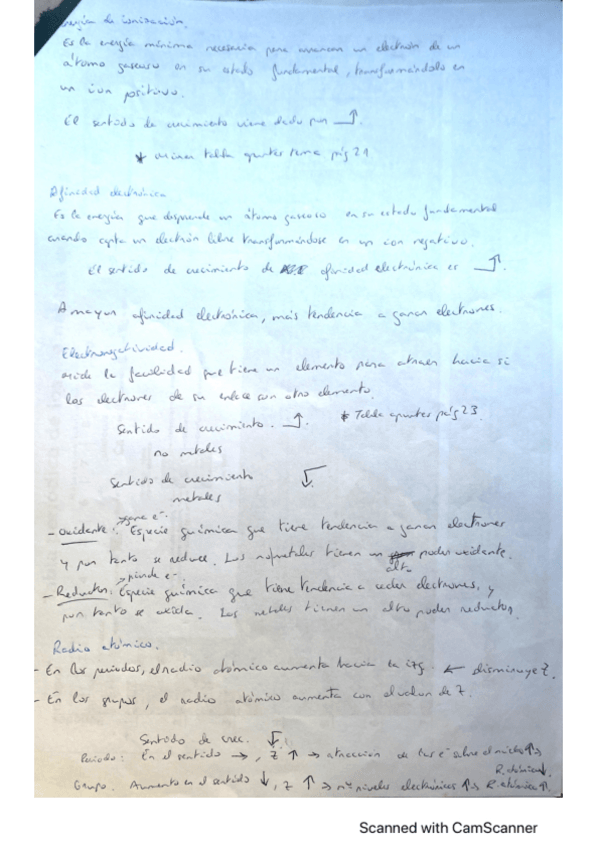 Energía de ionización.
Es la energía mínima necesaria para arrancar un electrón de un
átomo gaseoso en su estado fundamental, transformándolo en
un ion positivo.
El sentido de crecimiento viene dado por
* mirar tabla apuntes tema pág 21
Afinidad electrónica
Es la energía que desprende un átomo gaseoso en su estado fundamental
cuando capta un electrón libre transformándose en un ion negativo.
El sentido de crecimiento de afinidad electrónica es
A mayor afinidad electrónica, más tendencia a ganar electrones.
Electronegatividad.
Mide la facilidad que tiene un elemento para atraer hacia sí
los electrones de su enlace con otro elemento.
Sentido de crecimiento. * Tabla apuntes pág 23.
no metales
Sentido de crecimiento
metales
→ gana e-
- Oxidante: Especie química que tiene tendencia a ganar electrones
y por tanto se reduce. Los no metales tienen un alto poder oxidante.
→ pierde e-
- Reductor: Especie química que tiene tendencia a ceder electrones, y
por tanto se oxida. Los metales tienen un alto poder reductor.
Radio atómico.
- En los periodos, el radio atómico aumenta hacia la izq. ← disminuye Z.
- En los grupos, el radio atómico aumenta con el valor de Z.
Sentido de crec.
Periodo: En el sentido →, Z ↑ → atracción de los e- sobre el núcleo ↑ →
R. atómico ↓.
Grupo. Aumento en el sentido ↓, Z ↑ → nº niveles electrónicos ↑ → R. atómico ↑.
Scanned with CamScanner